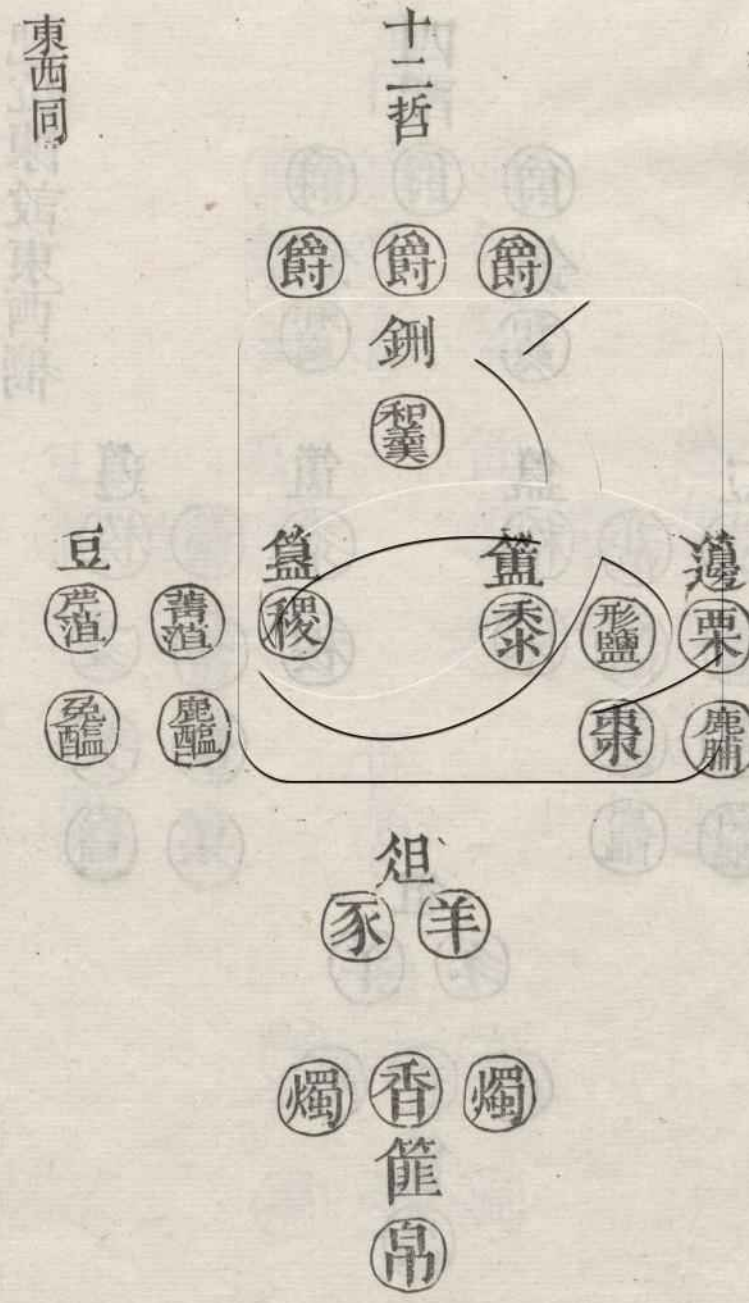 十二哲
東西同
爵 爵 爵
鉶
和羹
籩 簠 簋 豆
栗 形鹽 黍 稷 菁菹 芹菹
鹿脯 棗 鹿醢 兔醢
俎
羊 豕
燭 香 燭
篚
帛